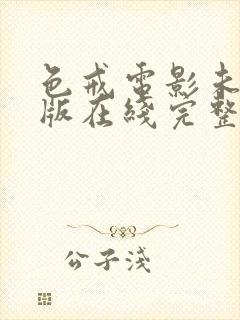 色戒電影未
版在綫完整
公子淺